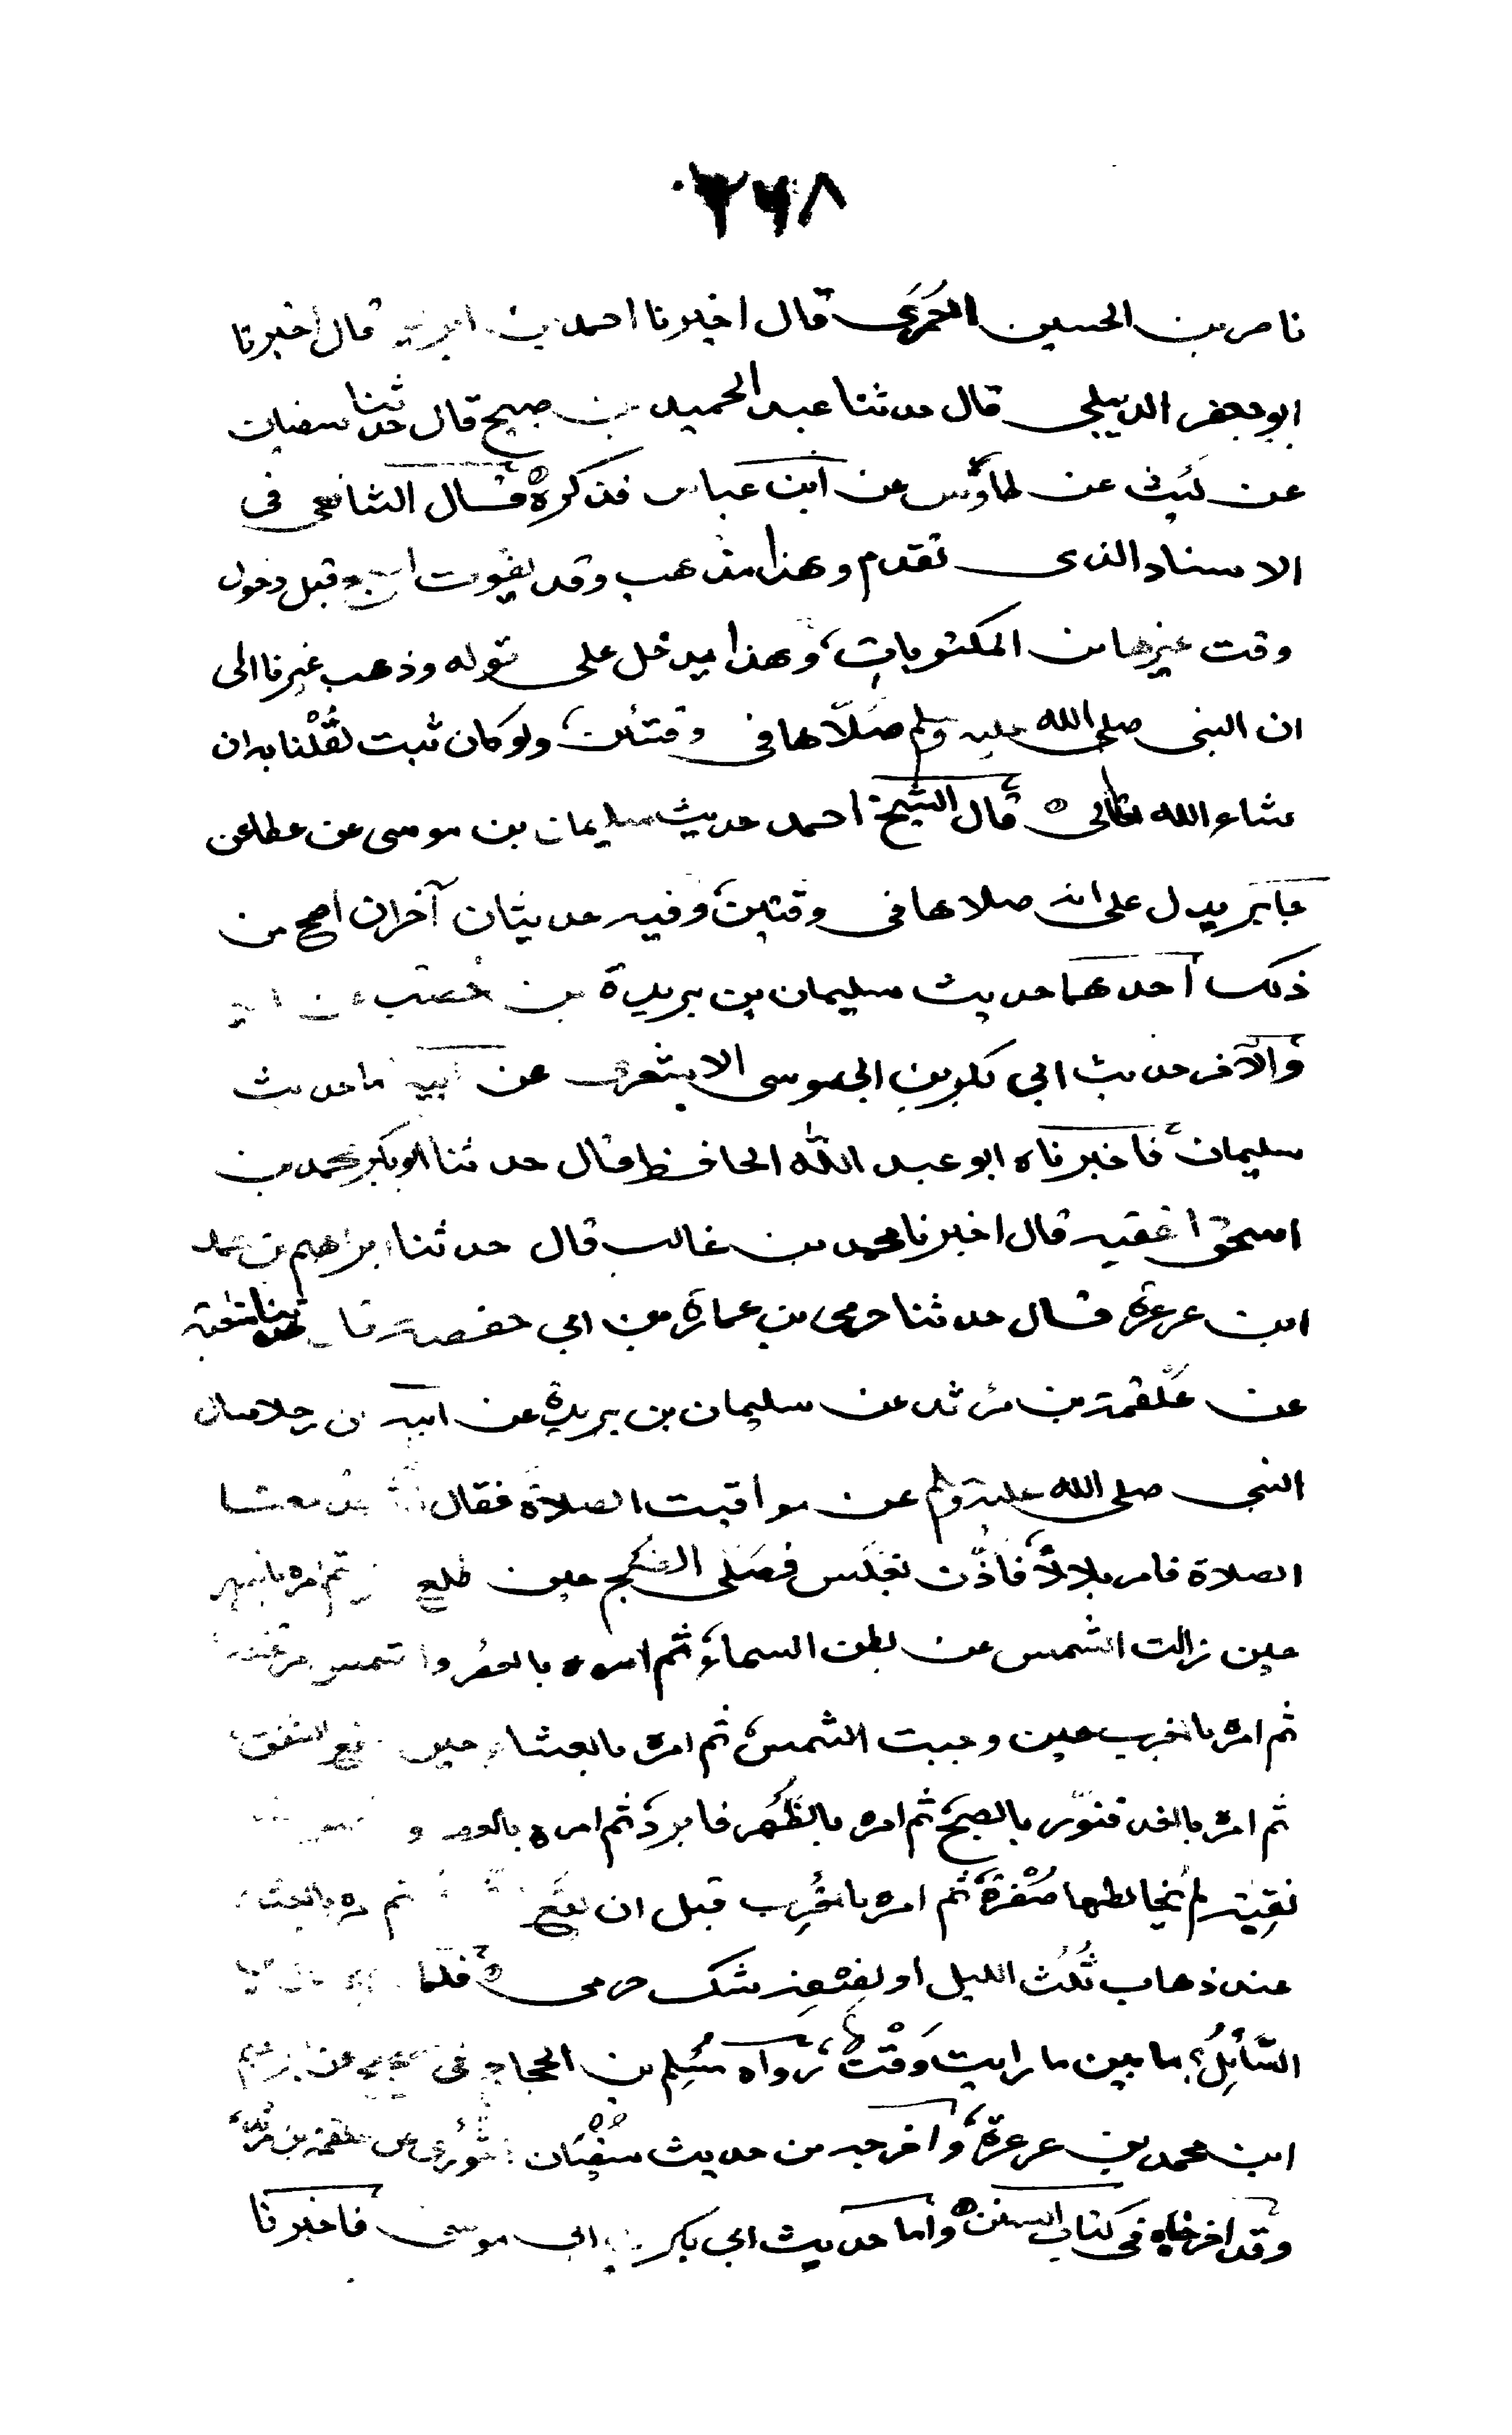 ٢٦٨
ناصر بن الحسين العمري قال اخبرنا احمد بن قال اخبرنا
ابو جعفر الديبلي قال حدثنا عبد الحميد بن صبيح قال حدثنا سفيان
عن ليث عن طاؤس عن ابن عباس فذكره قال الشافعي في
الاسناد الذي تقدم وهذا مذهب وقد يفوت قبل دخول
وقت غيرها من المكتوبات وهذا يدخل على قوله وذهب غيرنا الى
ان النبي صلى الله عليه وسلم صلّاها في وقتين ولو كان ثبت لقُلْنا به ان
شاء الله تعالى قال الشيخ احمد حديث سليمان بن موسى عن عطا عن
جابر يدل على انه صلاها في وقتين وفيه حديثان آخران اصح من
ذلك احدهما حديث سليمان بن بريدة بن
والآخر حديث ابي بكر بن ابي موسى الاشعري عن ابيه ما حديث
سليمان فاخبرناه ابو عبد الله الحافظ قال حدثنا ابو بكر محمد بن
اسحق الفقيه قال اخبرنا محمد بن غالب قال حدثنا ابراهيم بن محمد
ابن عرعرة قال حدثنا حرمي بن عمارة بن ابي حفصة قال حدثنا شعبة
عن علقمة بن مرثد عن سليمان بن بريدة عن ابيه ان رجلا سال
النبي صلى الله عليه وسلم عن مواقيت الصلاة فقال معنا
الصلاة فامر بلالاً فاذّن بغلس فصلى الصبح حين طلع ثم امره بالظهر
حين زالت الشمس عن بطن السماء ثم امره بالعصر والشمس مرتفعة
ثم امره بالمغرب حين وجبت الشمس ثم امره بالعشاء حين وقع الشفق
ثم امره بالغد فنوّر بالصبح ثم امره بالظهر فابرد ثم امره بالعصر و
نقية لم يخالطها صُفْرة ثم امره بالمغرب قبل ان يقع ثم امره بالعشاء
عند ذهاب ثُلُث الليل او بعضه شك حرمي فلما
السّائِلُ؟ ما بين ما رايت وَقْتٌ رواه مُسلم بن الحجاج في عن ابرهيم
ابن محمد بن عرعرة واخرجه من حديث سفيان الثوري عن علقمة بن مرثد
وقد اخرجناه في كتاب السنن واما حديث ابي بكر بن ابي موسى فاخبرنا